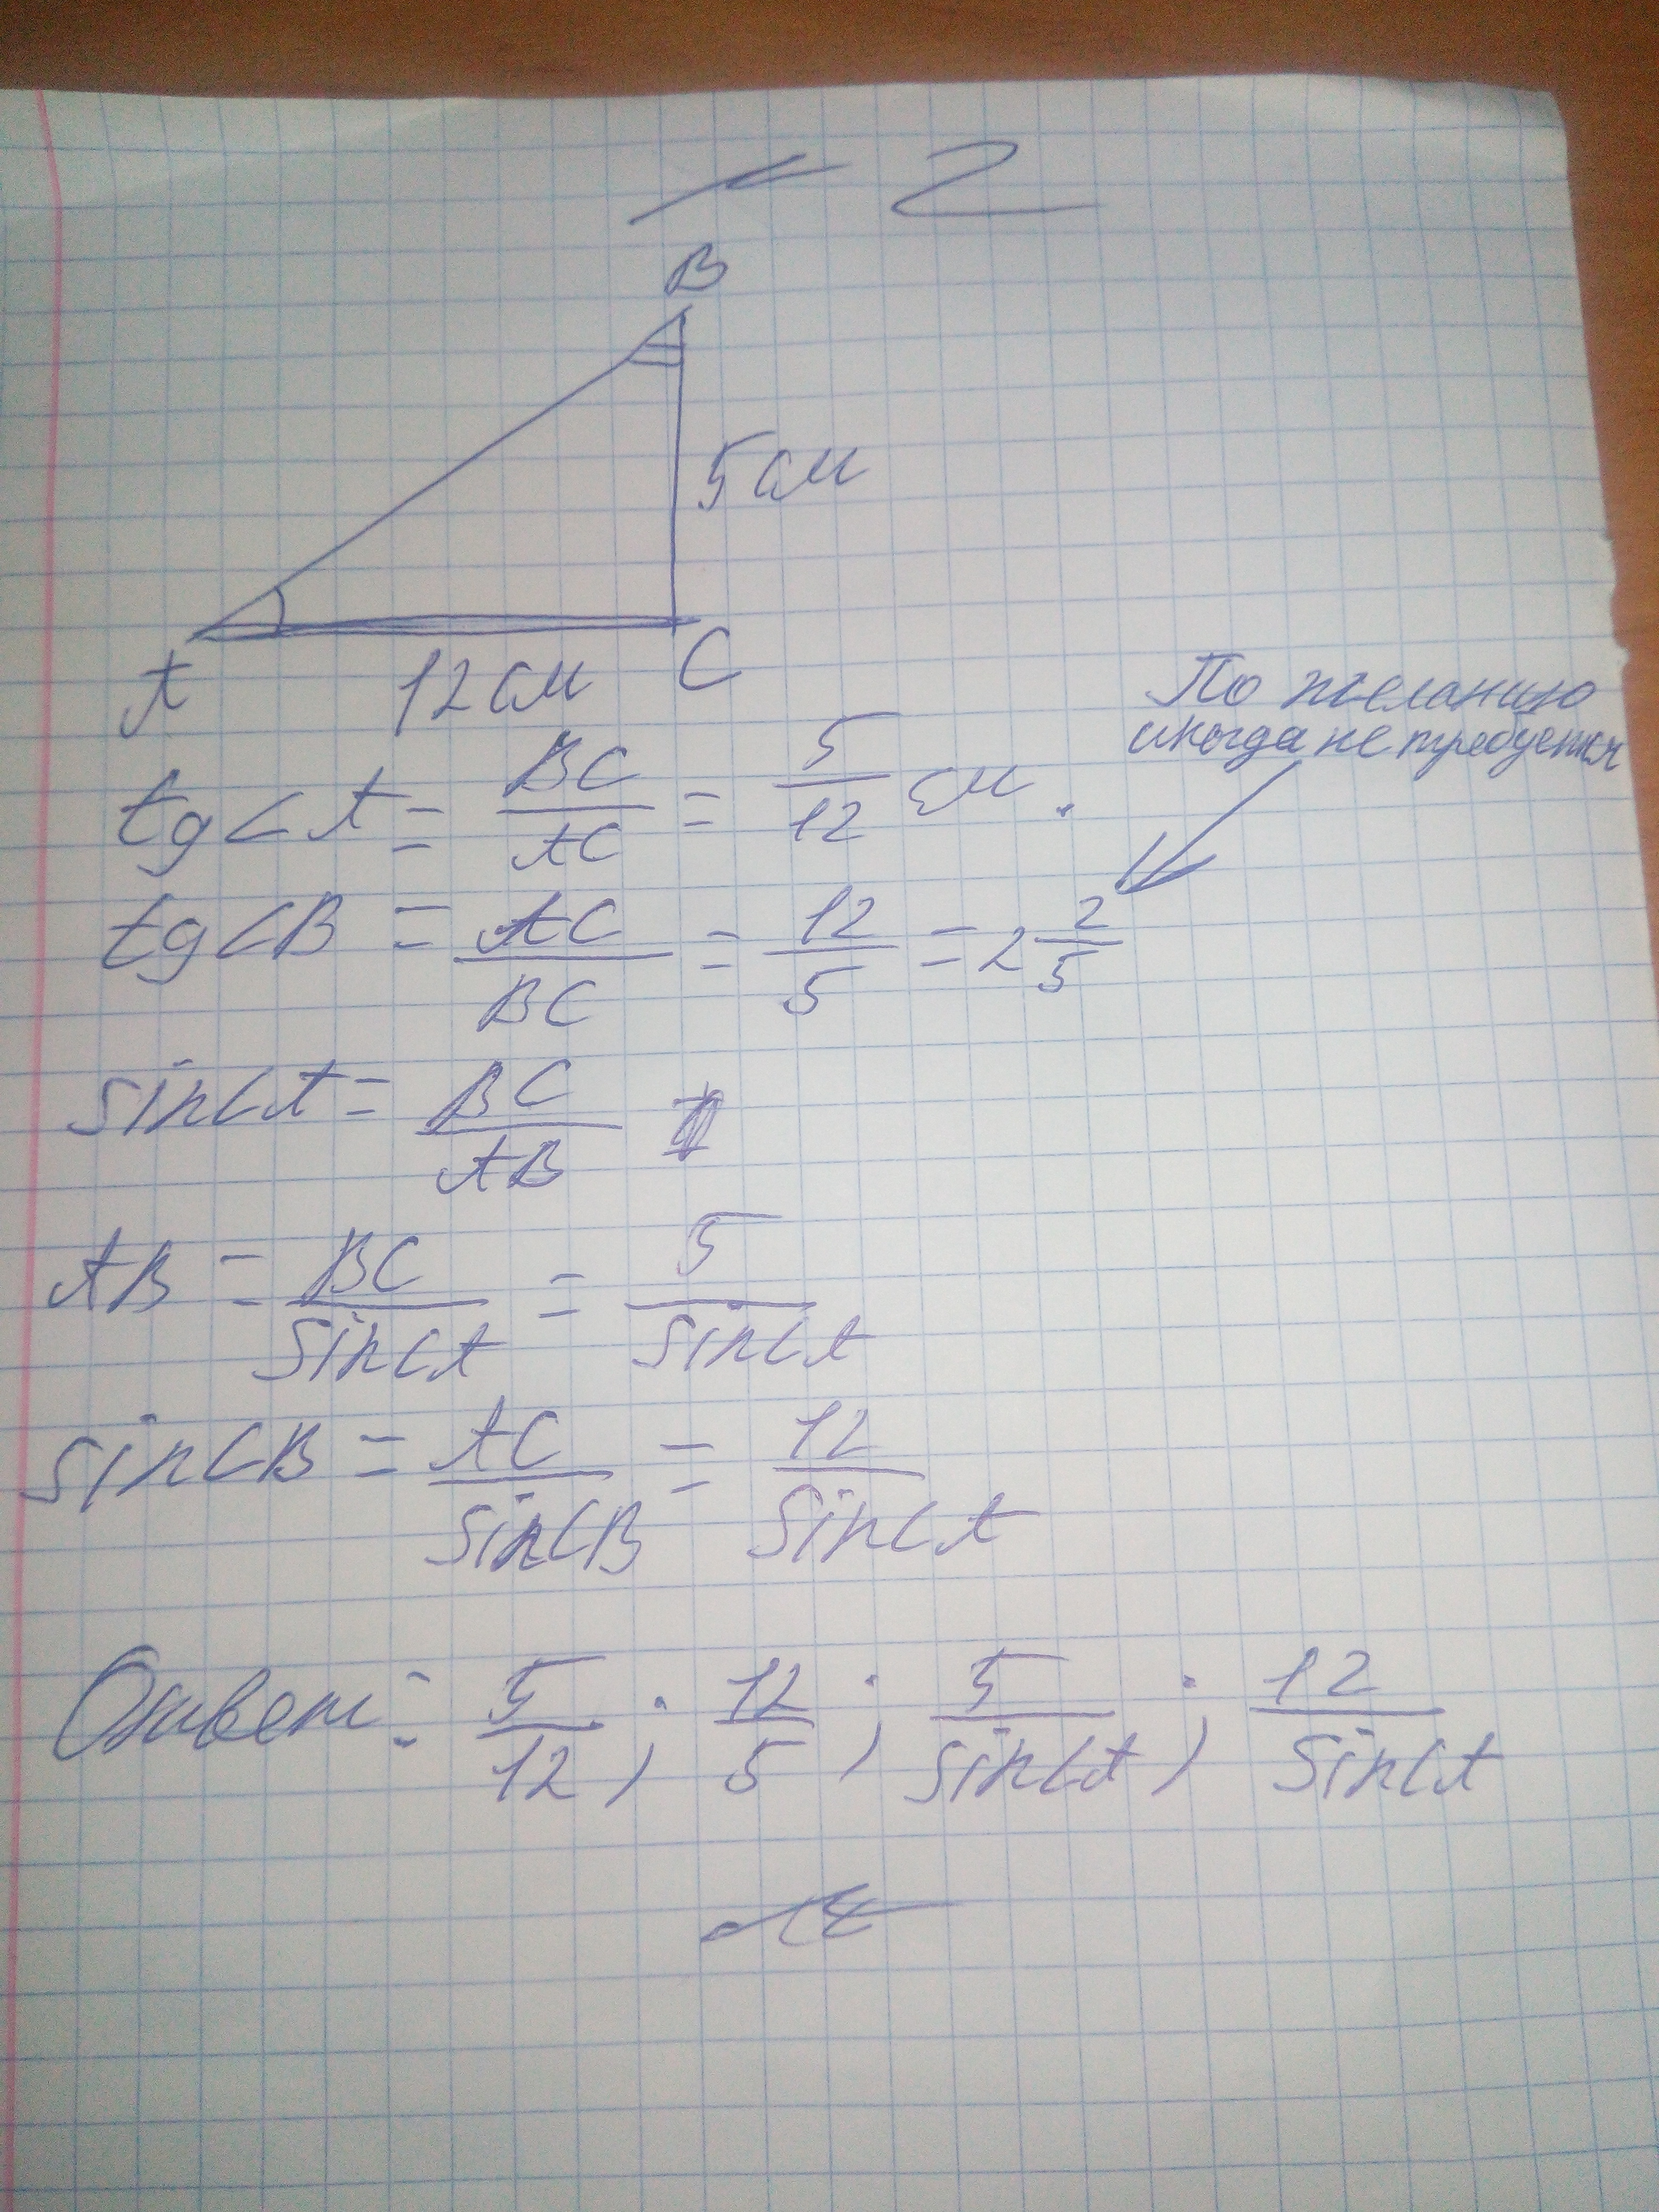 2
B
5 см
A 12 см C
По желанию
иногда не требуется
tg∠A = BC/AC = 5/12 см.
tg∠B = AC/BC = 12/5 = 2 2/5
sin∠A = BC/AB
AB = BC/sin∠A = 5/sin∠A
sin∠B = AC/sin∠B = 12/sin∠A
Ответ: 5/12; 12/5; 5/sin∠A; 12/sin∠A